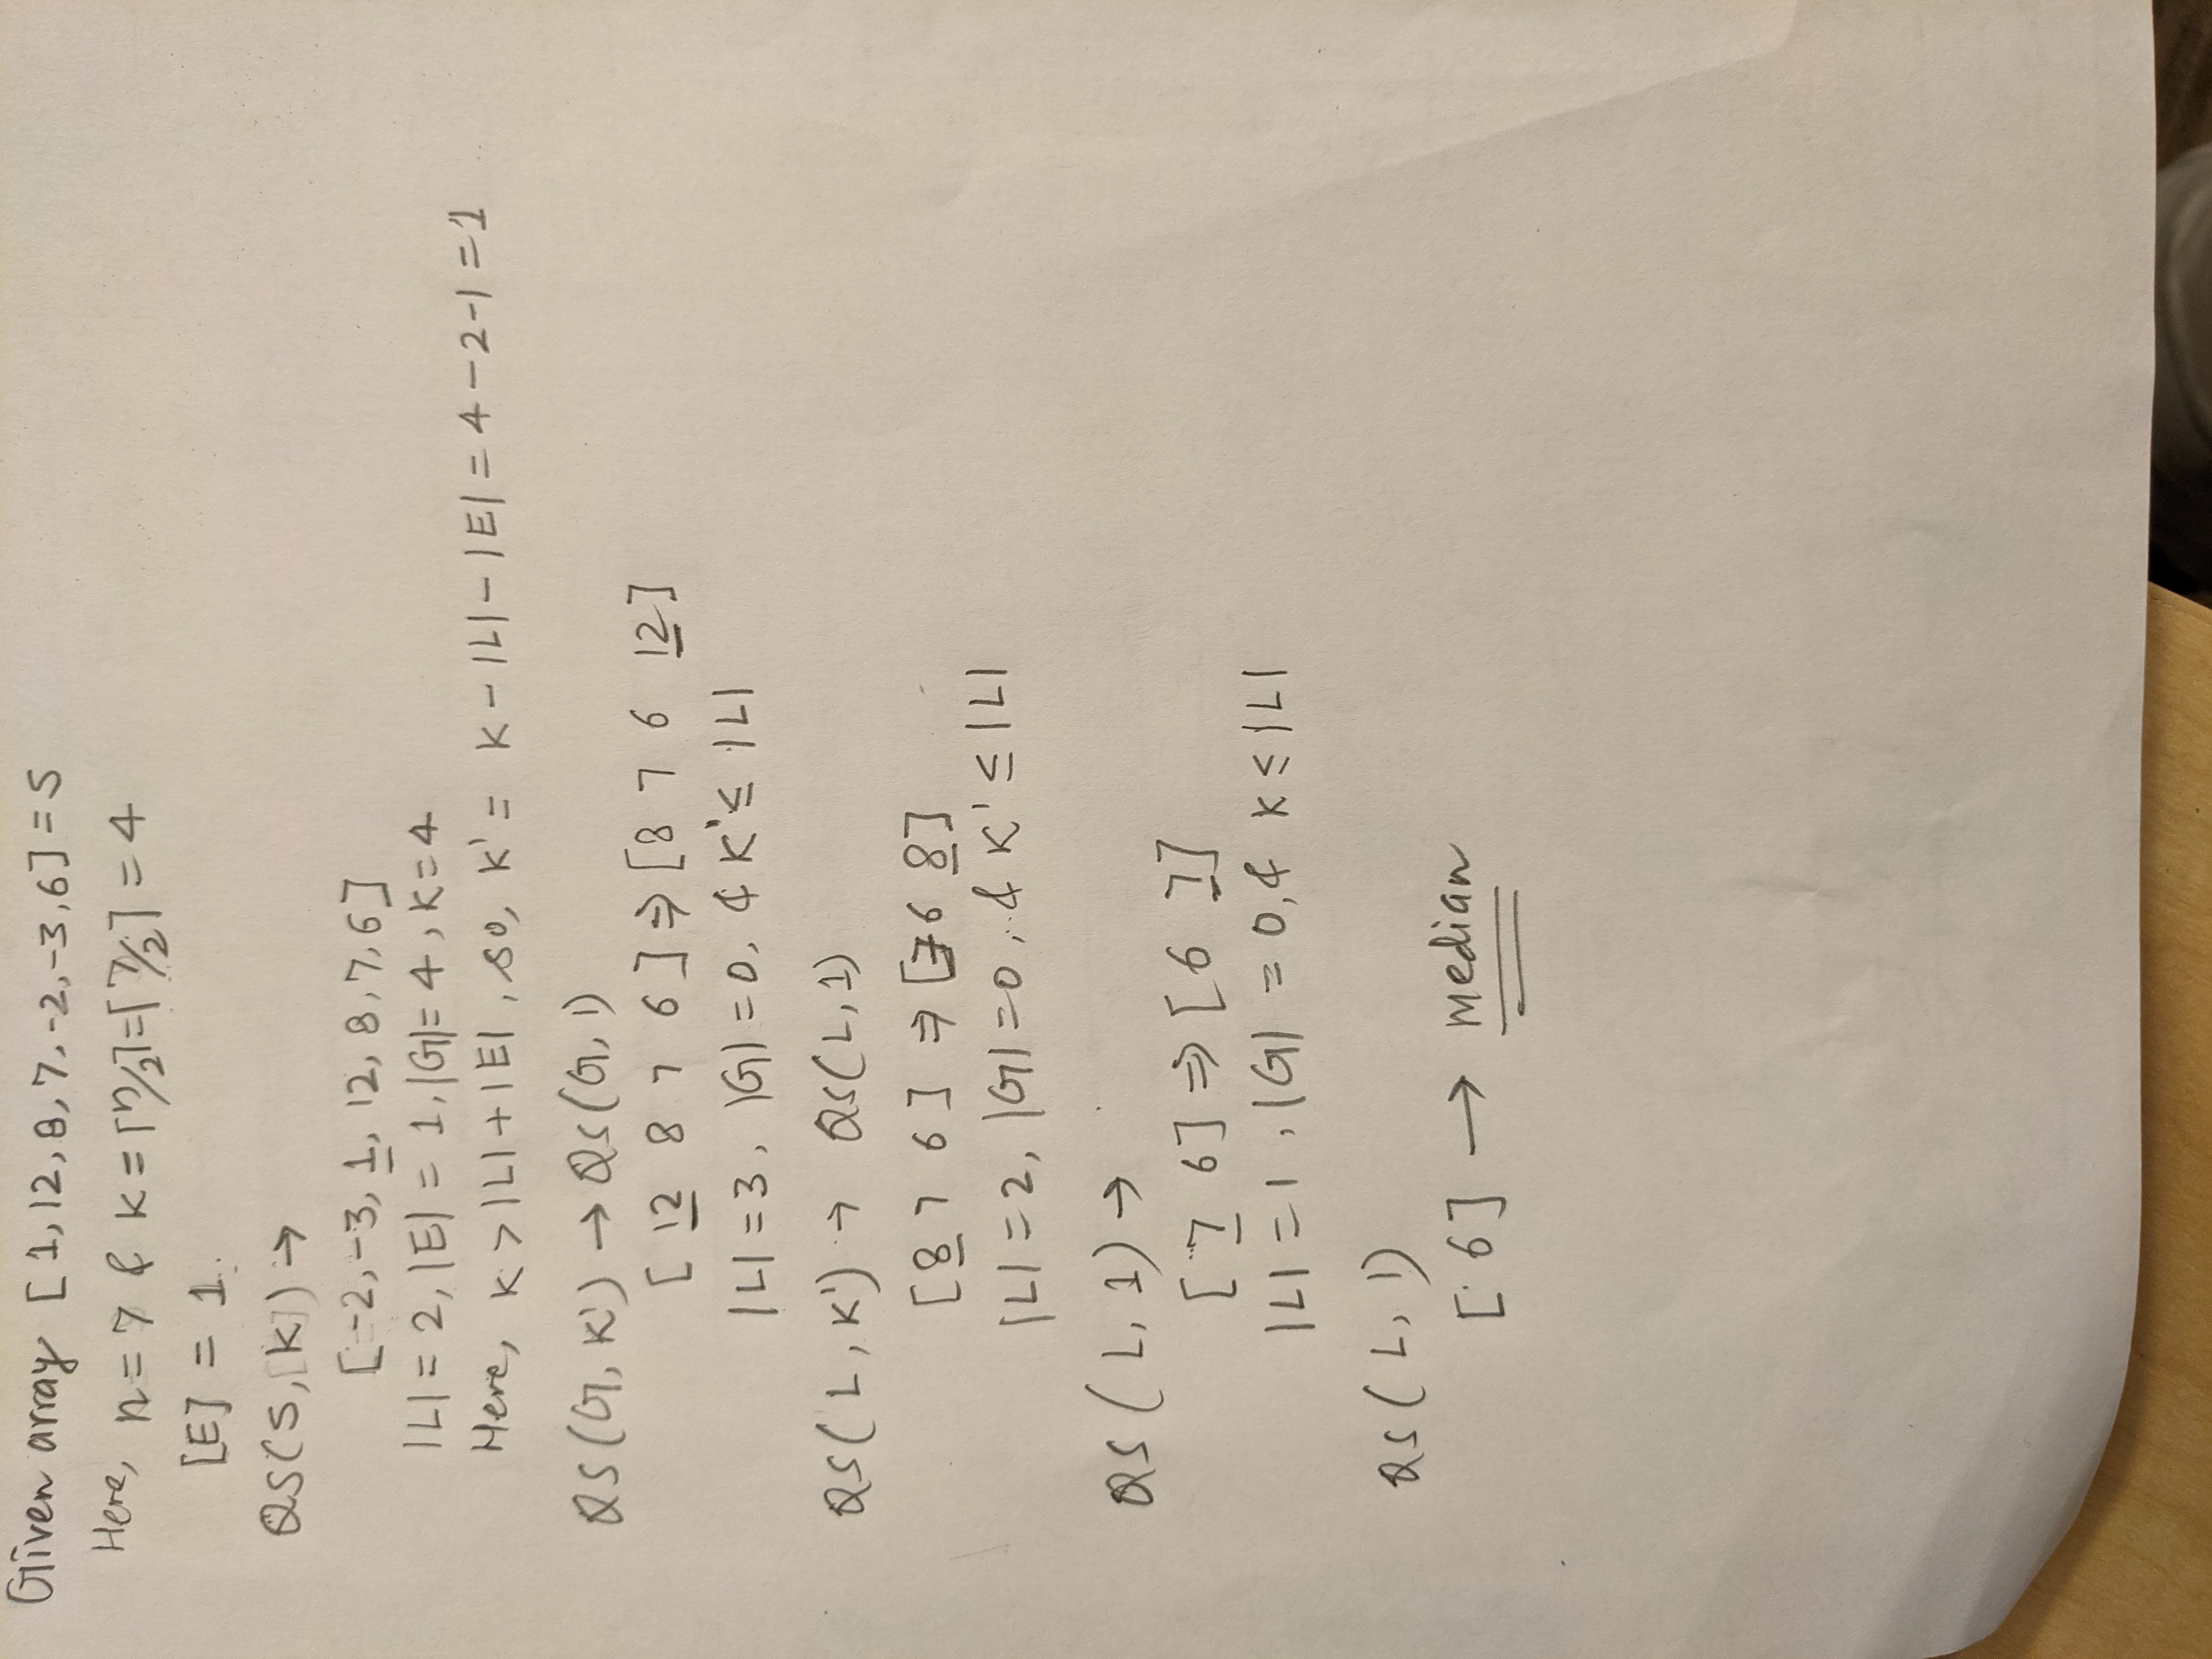 Given array [1, 12, 8, 7, -2, -3, 6] = S
Here, n = 7 & K = ⌈n/2⌉ = ⌈7/2⌉ = 4
[E] = 1.
QS(S, [K]) →
[-2, -3, 1, 12, 8, 7, 6]
|L| = 2, |E| = 1, |G| = 4, K = 4
Here, K > |L| + |E|, so, K' = K - |L| - |E| = 4 - 2 - 1 = 1
QS(G, K') → QS(G, 1)
[12 8 7 6] ⇒ [8 7 6 12]
|L| = 3, |G| = 0, & K' ≤ |L|
QS(L, K') → QS(L, 1)
[8 7 6] ⇒ [7 6 8]
|L| = 2, |G| = 0, & K' ≤ |L|
QS(L, 1) →
[7 6] ⇒ [6 7]
|L| = 1, |G| = 0, & K ≤ |L|
QS(L, 1)
[6] → median